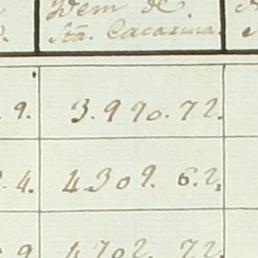 Idem de
Sta. Catarina.
9. 3.990.72.
4. 4.309. 62,
9 4.702. 72.